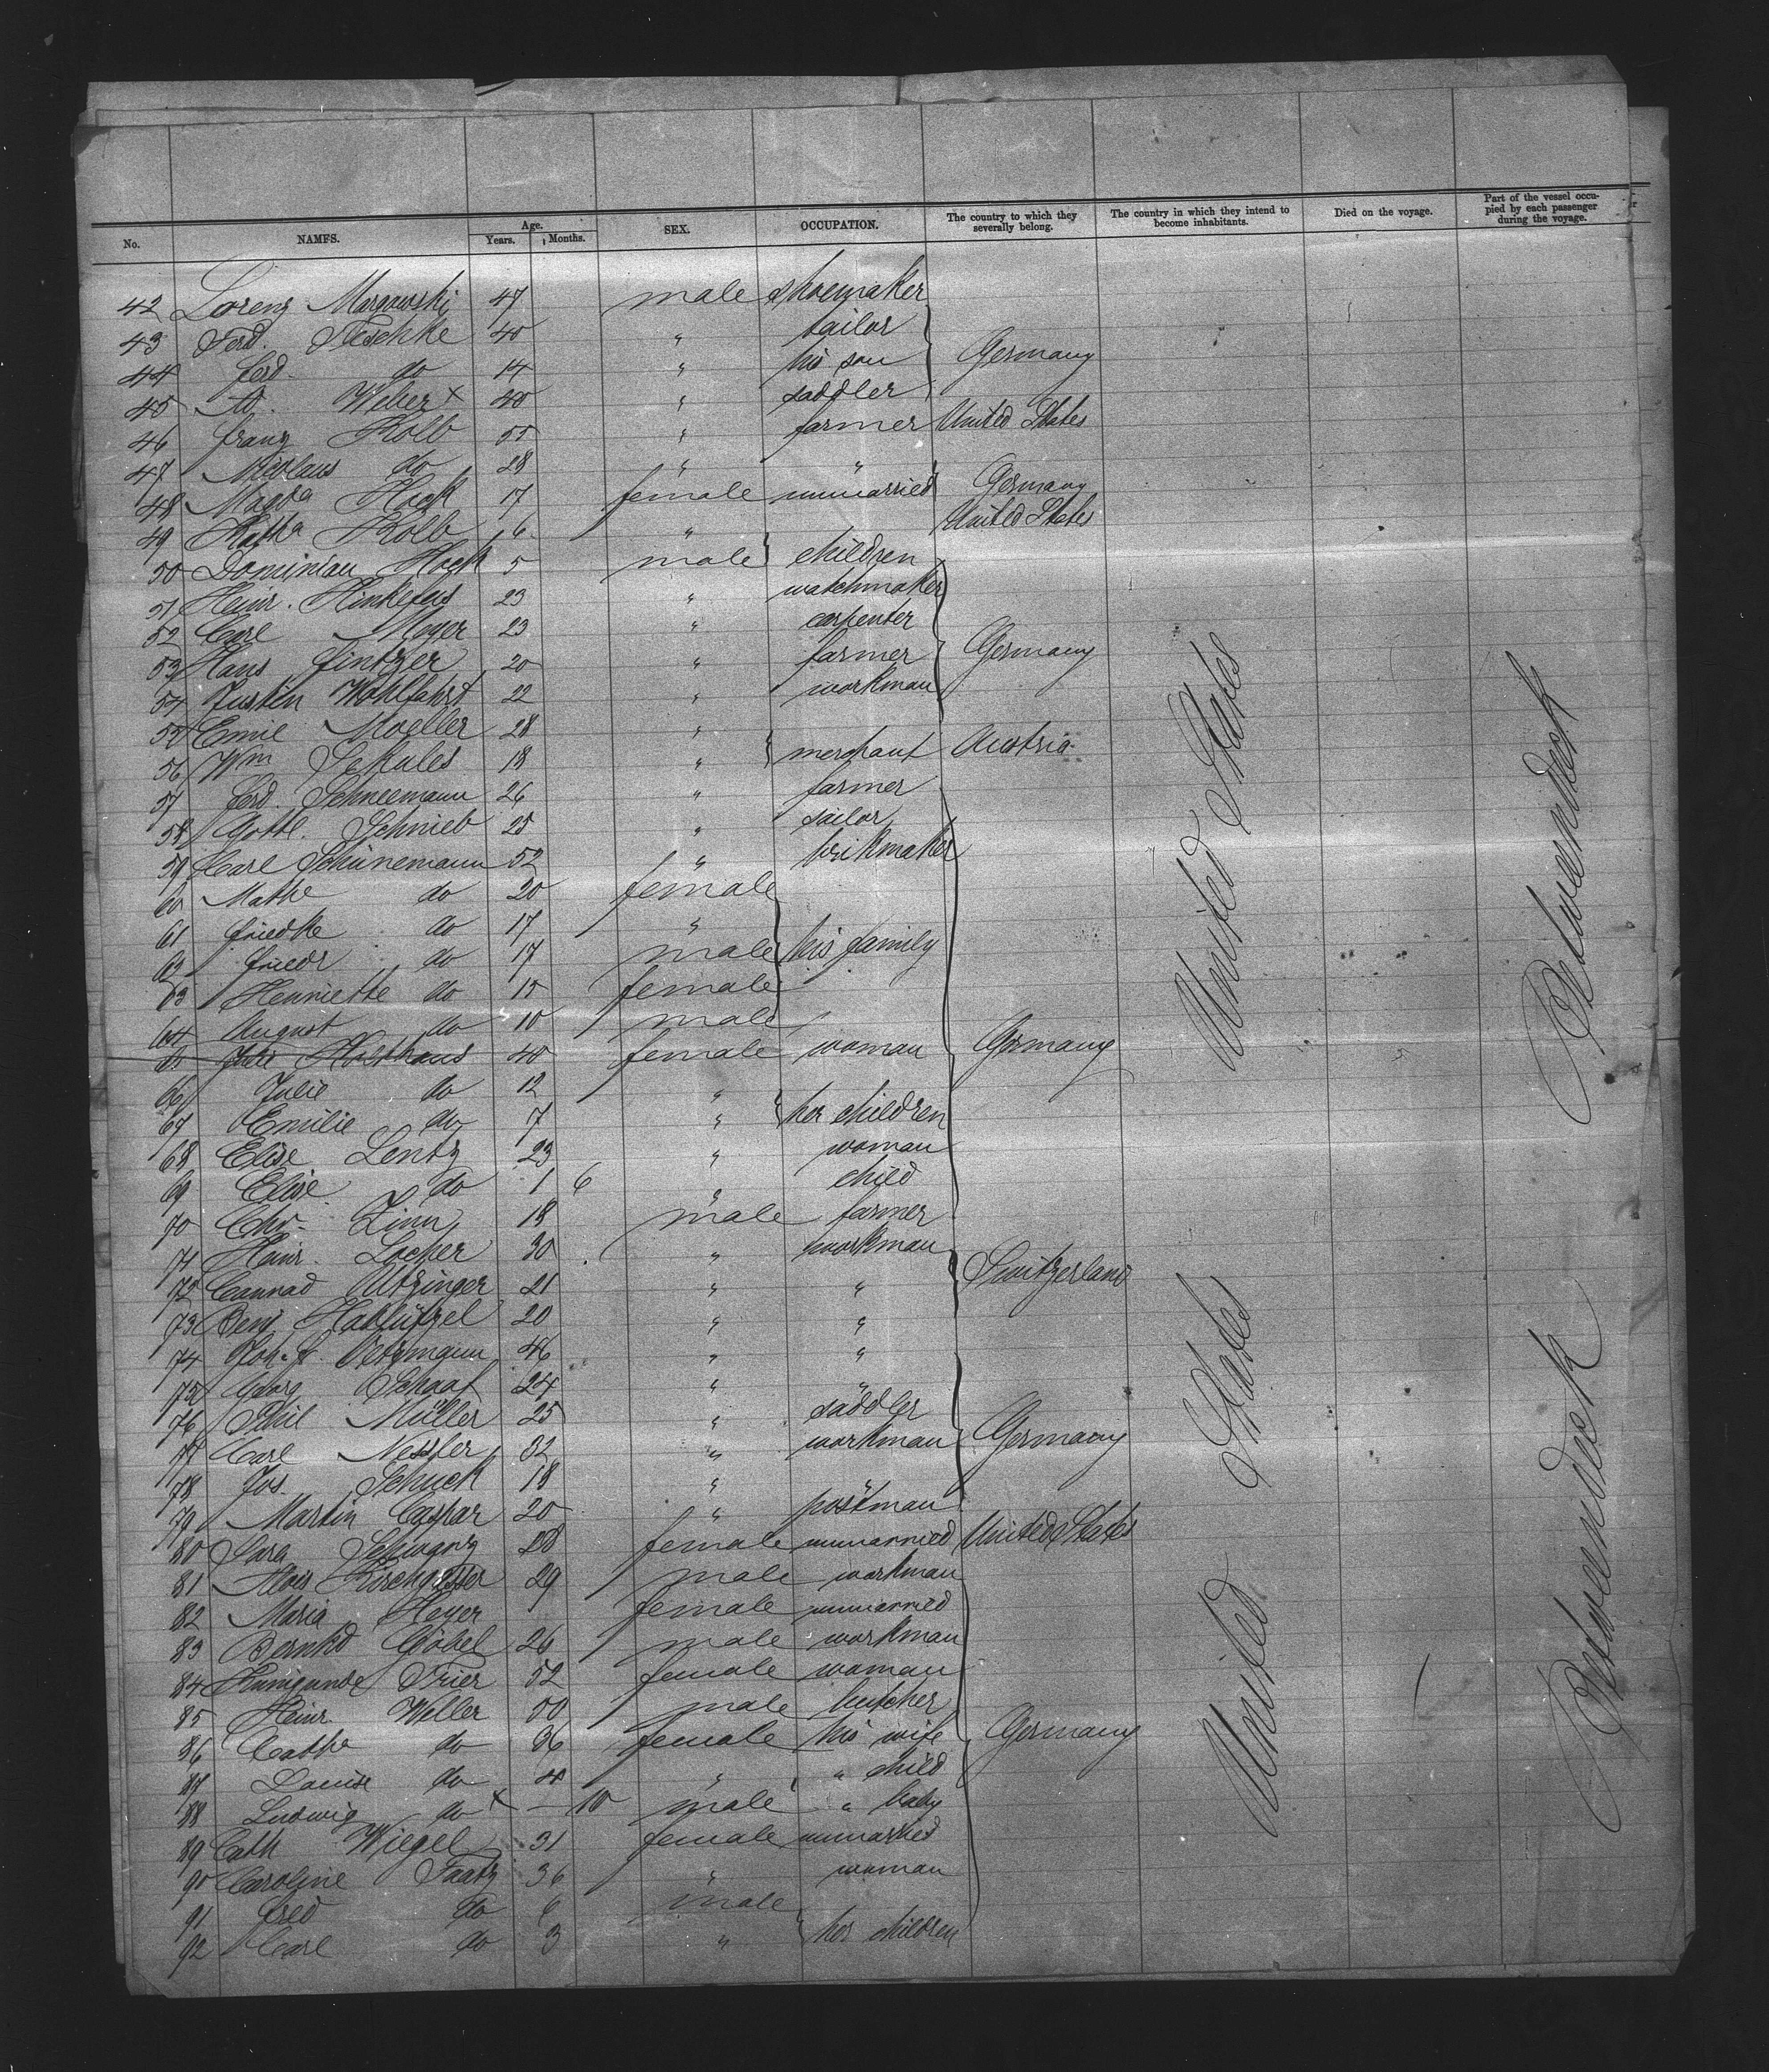 No. NAMES. Age. Years. Months. SEX. OCCUPATION. The country to which they severally belong. The country in which they intend to become inhabitants. Died on the voyage. Part of the vessel occupied by each passenger during the voyage.
42 Lorenz 47 male shoemaker
43 Ferd. Teschke 40 " tailor
44 Ferd. do 14 " his son Germany
45 Ad. Weber x 40 " saddler
46 Franz Kolb 55 " farmer United States
47 Nicolaus do 28 " "
48 Magda Hock 17 female unmarried Germany
49 Katha Kolb 6 " United States
50 Hock 5 male children
51 Heinr. Hinkefus 23 " watchmaker
52 Carl Meyer 23 " carpenter
53 Hans Fintzer 20 " farmer Germany
54 Justin Wohlfahrt 22 " workman
55 Emil Moeller 28 "
56 Wm Sekules 18 " merchant Austria
57 Ferd. Schneemann 26 " farmer
58 Gottl. Schnieb 25 " sailor
59 Carl Schünemann 52 " brikmaker
60 Mathe do 20 female
61 Friedke do 17 "
62 Friedr do 17 male his family
63 Henriette do 15 female
64 August do 10 male
65 Julie Holthaus 40 female woman Germany
66 Julie do 12 "
67 Emilie do 7 " her children
68 Elise Lentz 23 " woman
69 Elise do 1 6 " child
70 Chr. Zinn 18 male farmer
71 Heinr. Locher 30 " workman
72 Connad Utzinger 21 " " Switzerland
73 Benj Hablützel 20 " "
74 Joh. 46 " "
75 Georg Schaaf 24 " "
76 Phil Müller 25 " saddler
77 Carl Nessler 32 " workman Germany
78 Jos. Schuck 18 " "
79 Martin Caspar 20 " postman
80 Sara Schwarz 28 female unmarried United States
81 Alois Kirchgässer 29 male workman
82 Maria Heyer female unmarried
83 Bernhd Göbel 26 male workman
84 Kunigunde Trier 52 female woman
85 Heinr. Weller 50 male butcher
86 Cathe do 36 female his wife Germany
87 Louise do 4 " " child
88 Ludwig do x — 10 male " baby
89 Cath Wiegel 31 female unmarried
90 Caroline Taatz 36 " woman
91 Fred do 6 male
92 Carl do 3 " her children
United States
Betweendeck
United States
Betweendeck